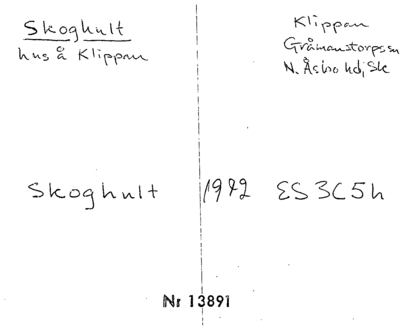 Skoghult
hus å Klippan
Klippan
Gråmanstorps sn
N. Åsbo hd, Sk
Skoghult 1972 ES 3C5h
Nr 13891